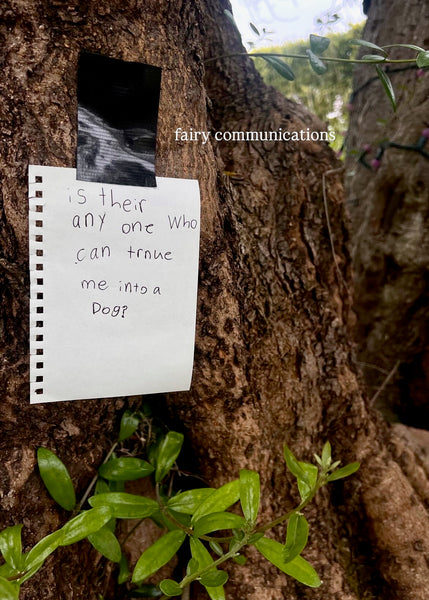 fairy communications
is their
any one who
can trnue
me into a
Dog?